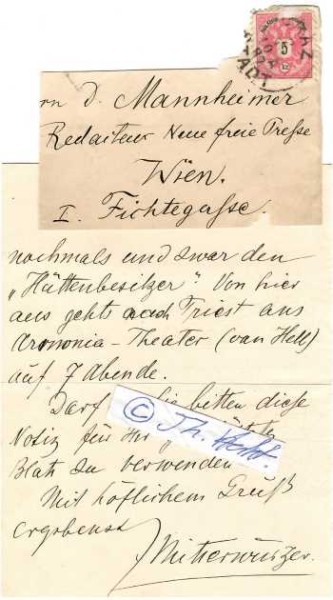 5
rn D. Mannheimer
Redacteur Neue freie Presse
Wien.
I. Fichtegasse.
nochmals und zwar den
„Hüttenbesitzer“. Von hier
aus gehts nach Triest ans
Armonia-Theater (van Hell)
auf 7 Abende.
Darf Sie bitten diese
Notiz für Ihr
Blatt zu verwenden
Mit höflichem Gruß
ergebenst
Mitterwurzer.
©